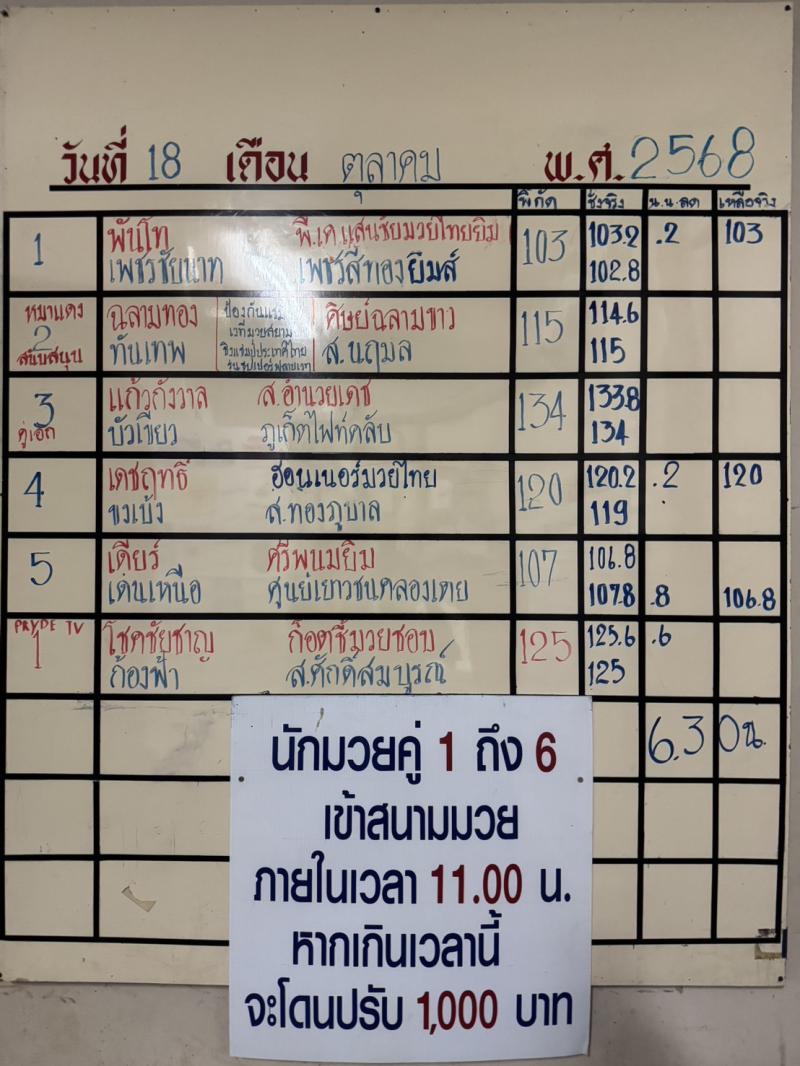 วันที่ 18 เดือน ตุลาคม พ.ศ. 2568
พิกัด ชั่งจริง น.น.ลด เหลือจริง
1 พันโท พี.เค.แสนชัยมวยไทยยิม 103 103.2 .2 103
เพชรชัยนาท เพชรสี่ทองยิมส์ 102.8
หมาแดง ฉลามทอง ศิษย์ฉลามขาว 115 114.6
2 ป้องกันแชมป์
เวทีมวยสยาม
ชิงแชมป์ประเทศไทย
รุ่นซุปเปอร์ฟลายเวท
สนับสนุน ทันเทพ ส.นฤมล 115
3 แก้วกังวาล ส.อำนวยเดช 134 133.8
คู่เอก บัวเขียว ภูเก็ตไฟท์คลับ 134
4 เดชฤทธิ์ ฮอนเนอร์มวยไทย 120 120.2 .2 120
ขงเบ้ง ส.ทองภูบาล 119
5 เดียร์ ศรีพนมยิม 107 106.8
เด่นเหนือ ศูนย์เยาวชนคลองเตย 107.8 .8 106.8
PRYDE TV โชคชัยชาญ ก็อตซี้มวยชอบ 125 125.6 .6
1 ก้องฟ้า ส.ศักดิ์สมบูรณ์ 125
6.30น.
นักมวยคู่ 1 ถึง 6
เข้าสนามมวย
ภายในเวลา 11.00 น.
หากเกินเวลานี้
จะโดนปรับ 1,000 บาท